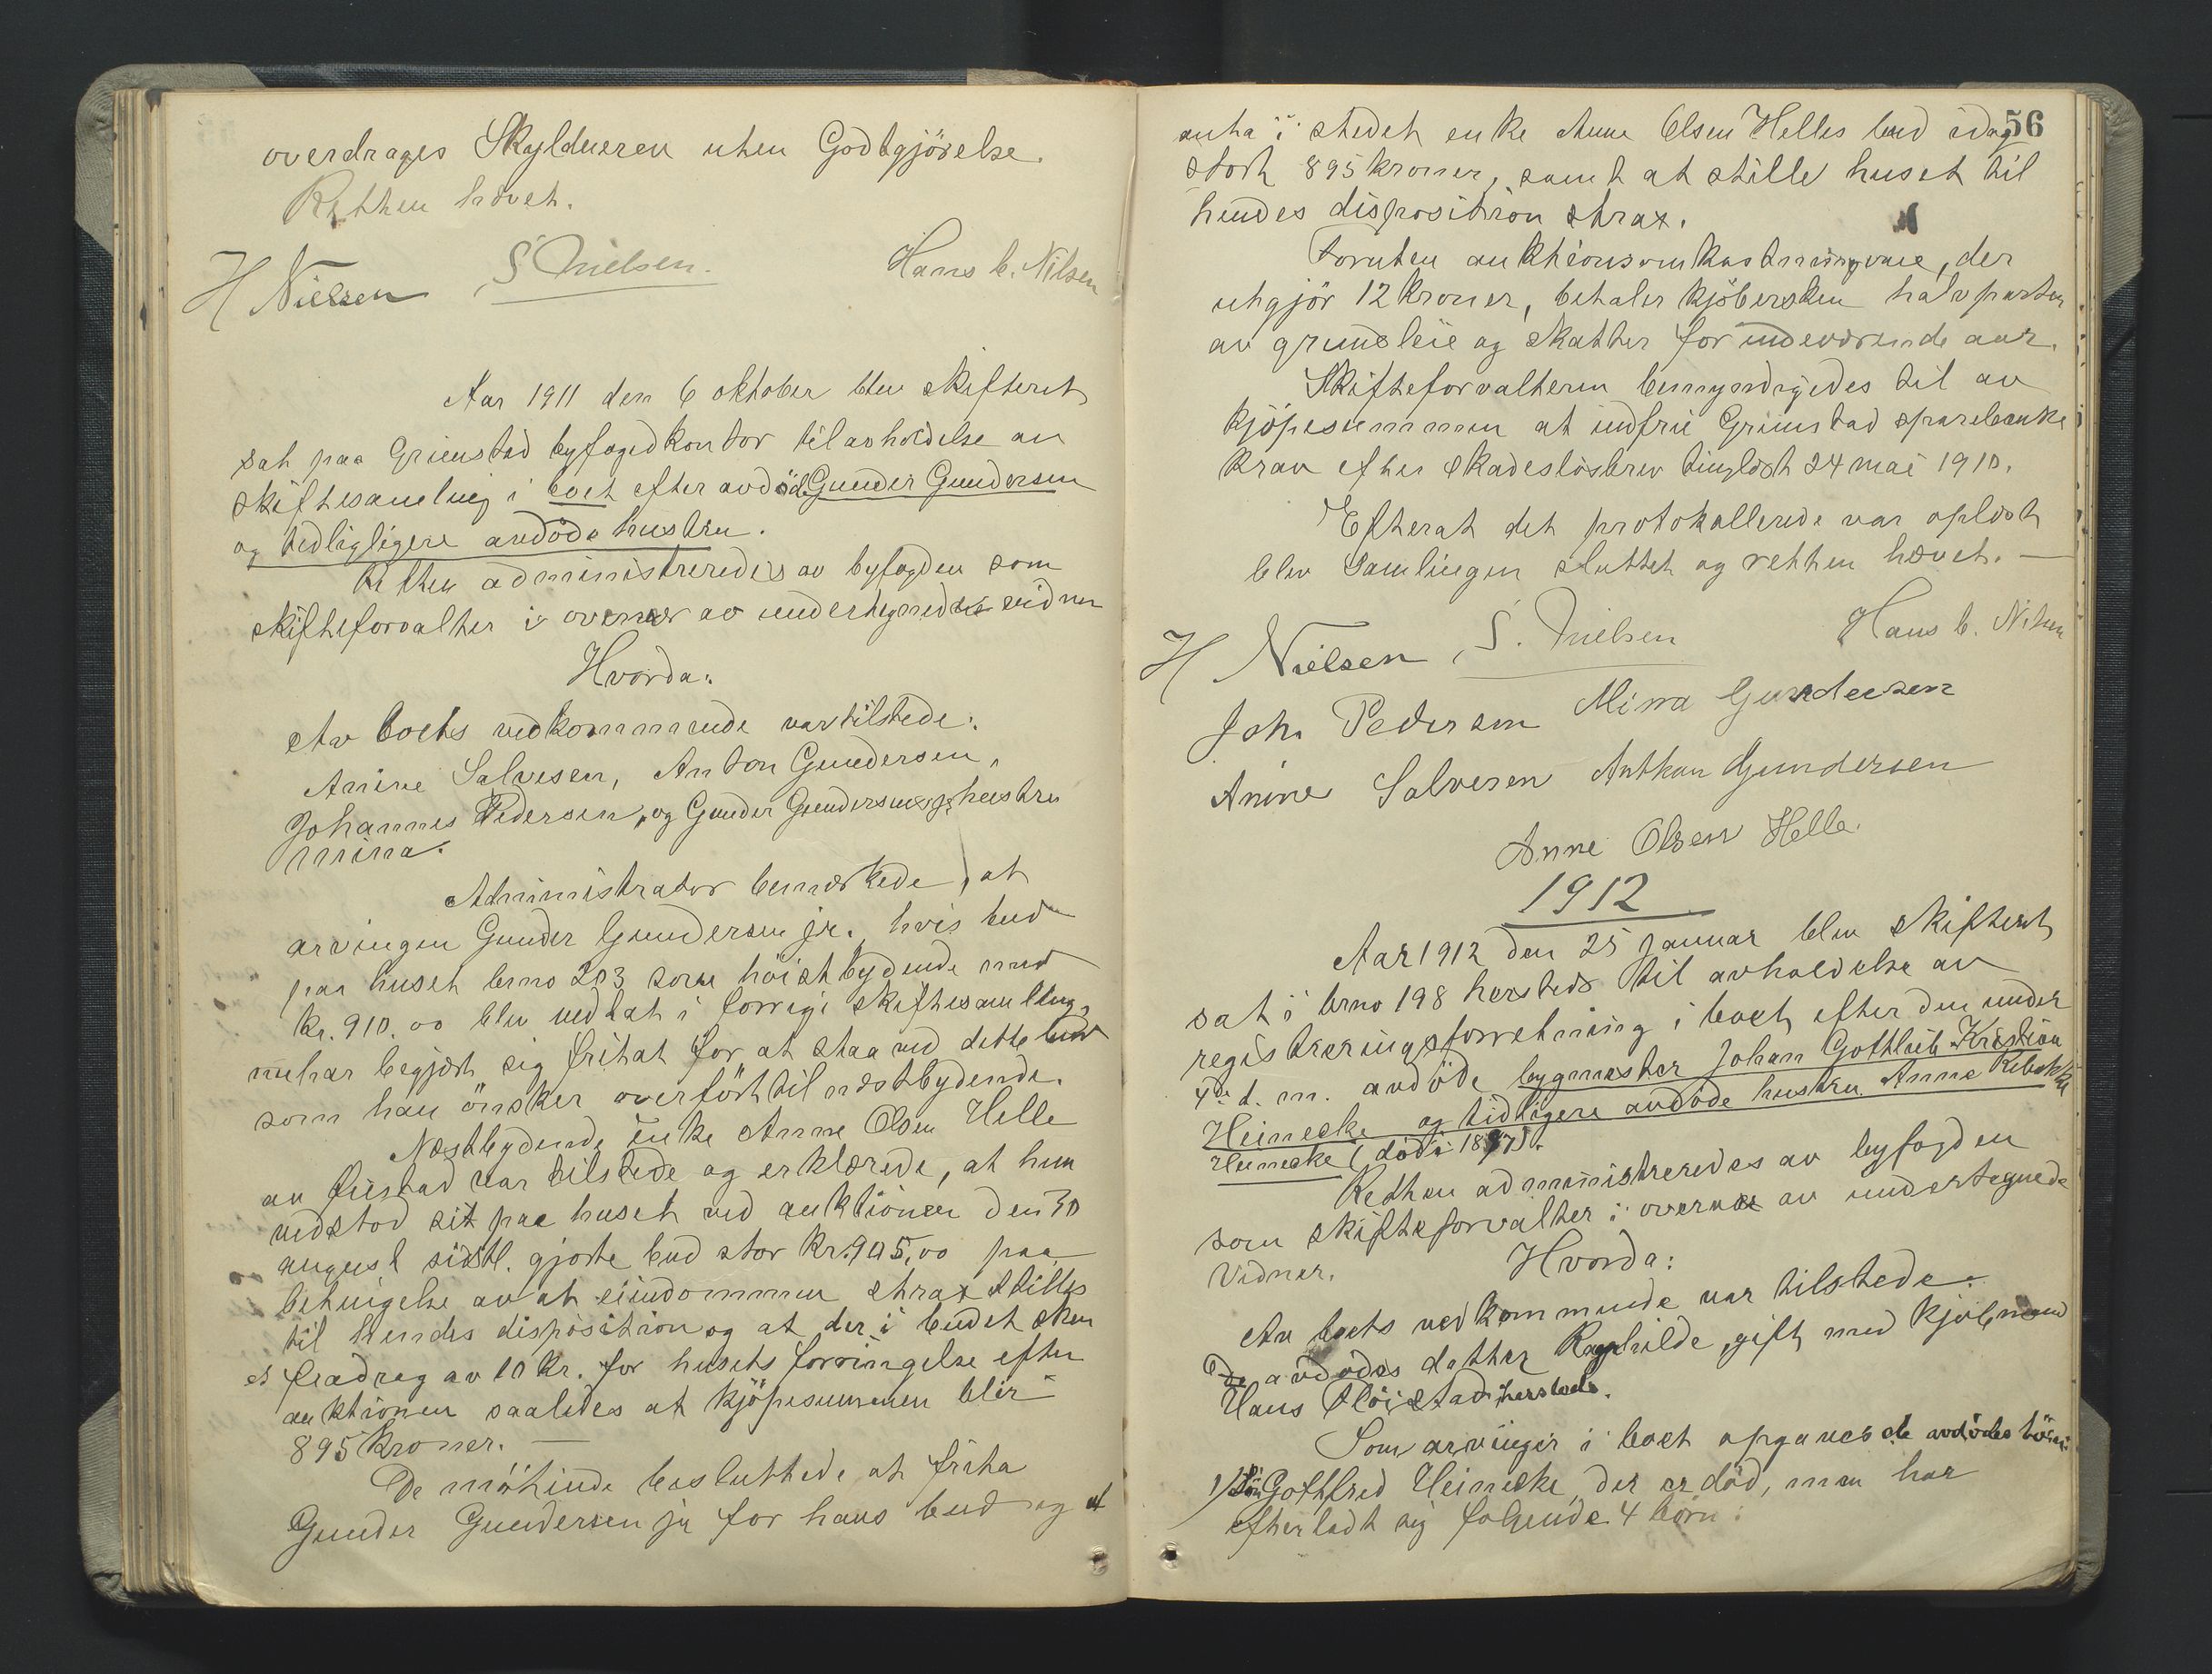 overdrages Skylderen uten Godtgjörelse.
Retten hævet.
H Nielsen S Nielsen. Hans C. Nilsen
Aar 1911 den 6 oktober blev skifteret
sat paa Grimstad byfogedkontor til avholdelse av
skiftesamling i boet efter avdöde Gunder Gundersen
og tidligligere avdöde hustru.
Retten administreredes av byfogden som
skifteforvalter i overvær av undertegnede vidner
Hvorda:
Av boets vedkommende var tilstede:
Anine Salvesen, Anton Gundersen,
Johannes Pedersen, og Gunder Gundersens jr hustru
Mina.
Administrator bemærkede, at
arvingen Gunder Gundersen jr. hvis bud
paa huset brno 203 som höistbydende med
kr. 910.00 blev vedtat i forrige skiftesamling,
nu har begjært sig fritat for at staa ved dette bud
som han önsker overfört til næstbydende.
Næstbydende enke Anne Olsen Helle
av Fiistad var tilstede og erklærede, at hun
vedstod sit paa huset ved auktionen den 30
august sidstl. gjorte bud stor kr. 905,00 paa
betingelse av at eiendommen strax stilles
til hendes disposition og at der i budet sker
et fradrag av 10 kr. for husets forringelse efter
auktionen saaledes at kjöpesummen blir
895 kroner. —
De mötende besluttede at frita
Gunder Gundersen jr for hans bud og at
56
anta i stedet enke Anne Olsen Helles bud idag
stort 895 kroner, samt at stille huset til
hendes disposition strax.
Foruten auktionsomkostningerne, der
utgjör 12 kroner, betaler kjöbersken halvparten
av grundleie og skatter for indeværende aar.
Skifteforvalteren bemyndigedes til av
kjöpesummen at indfrie Grimstad sparebanks
krav efter skadeslösbrev tinglæst 24 mai 1910.
Efterat det protokollerede var oplæst
blev Samlingen sluttet og retten hævet. —
H Nielsen S. Nielsen Hans C. Nilsen
Joh. Pedersen Mina Gundersen
Anine Salvesen Anthon Gundersen
Anne Olsen Helle.
1912
Aar 1912 den 25 januar blev skifteret
sat i brno 198 hersteds til avholdelse av
registreringsforretning i boet efter den under
4de d. m. avdöde bygmester Johan Gottlieb Kristian
Heinecke og tidligere avdöde hustru Anne Rebekka
Heinecke (död i 1897).
Retten administreredes av byfogden
som skifteforvalter i overvær av undertegnede
Vidner. Hvorda:
Av boets vedkommende var tilstede:
De avdödes datter Ragnhilde, gift med kjöbmand
Hans Flöistad hersteds.
Som arvinger i boet opgaves de avdödes börn:
1/ Sön Gottfred Heinecke, der er död, men har
efterladt sig fölgende 4 börn: